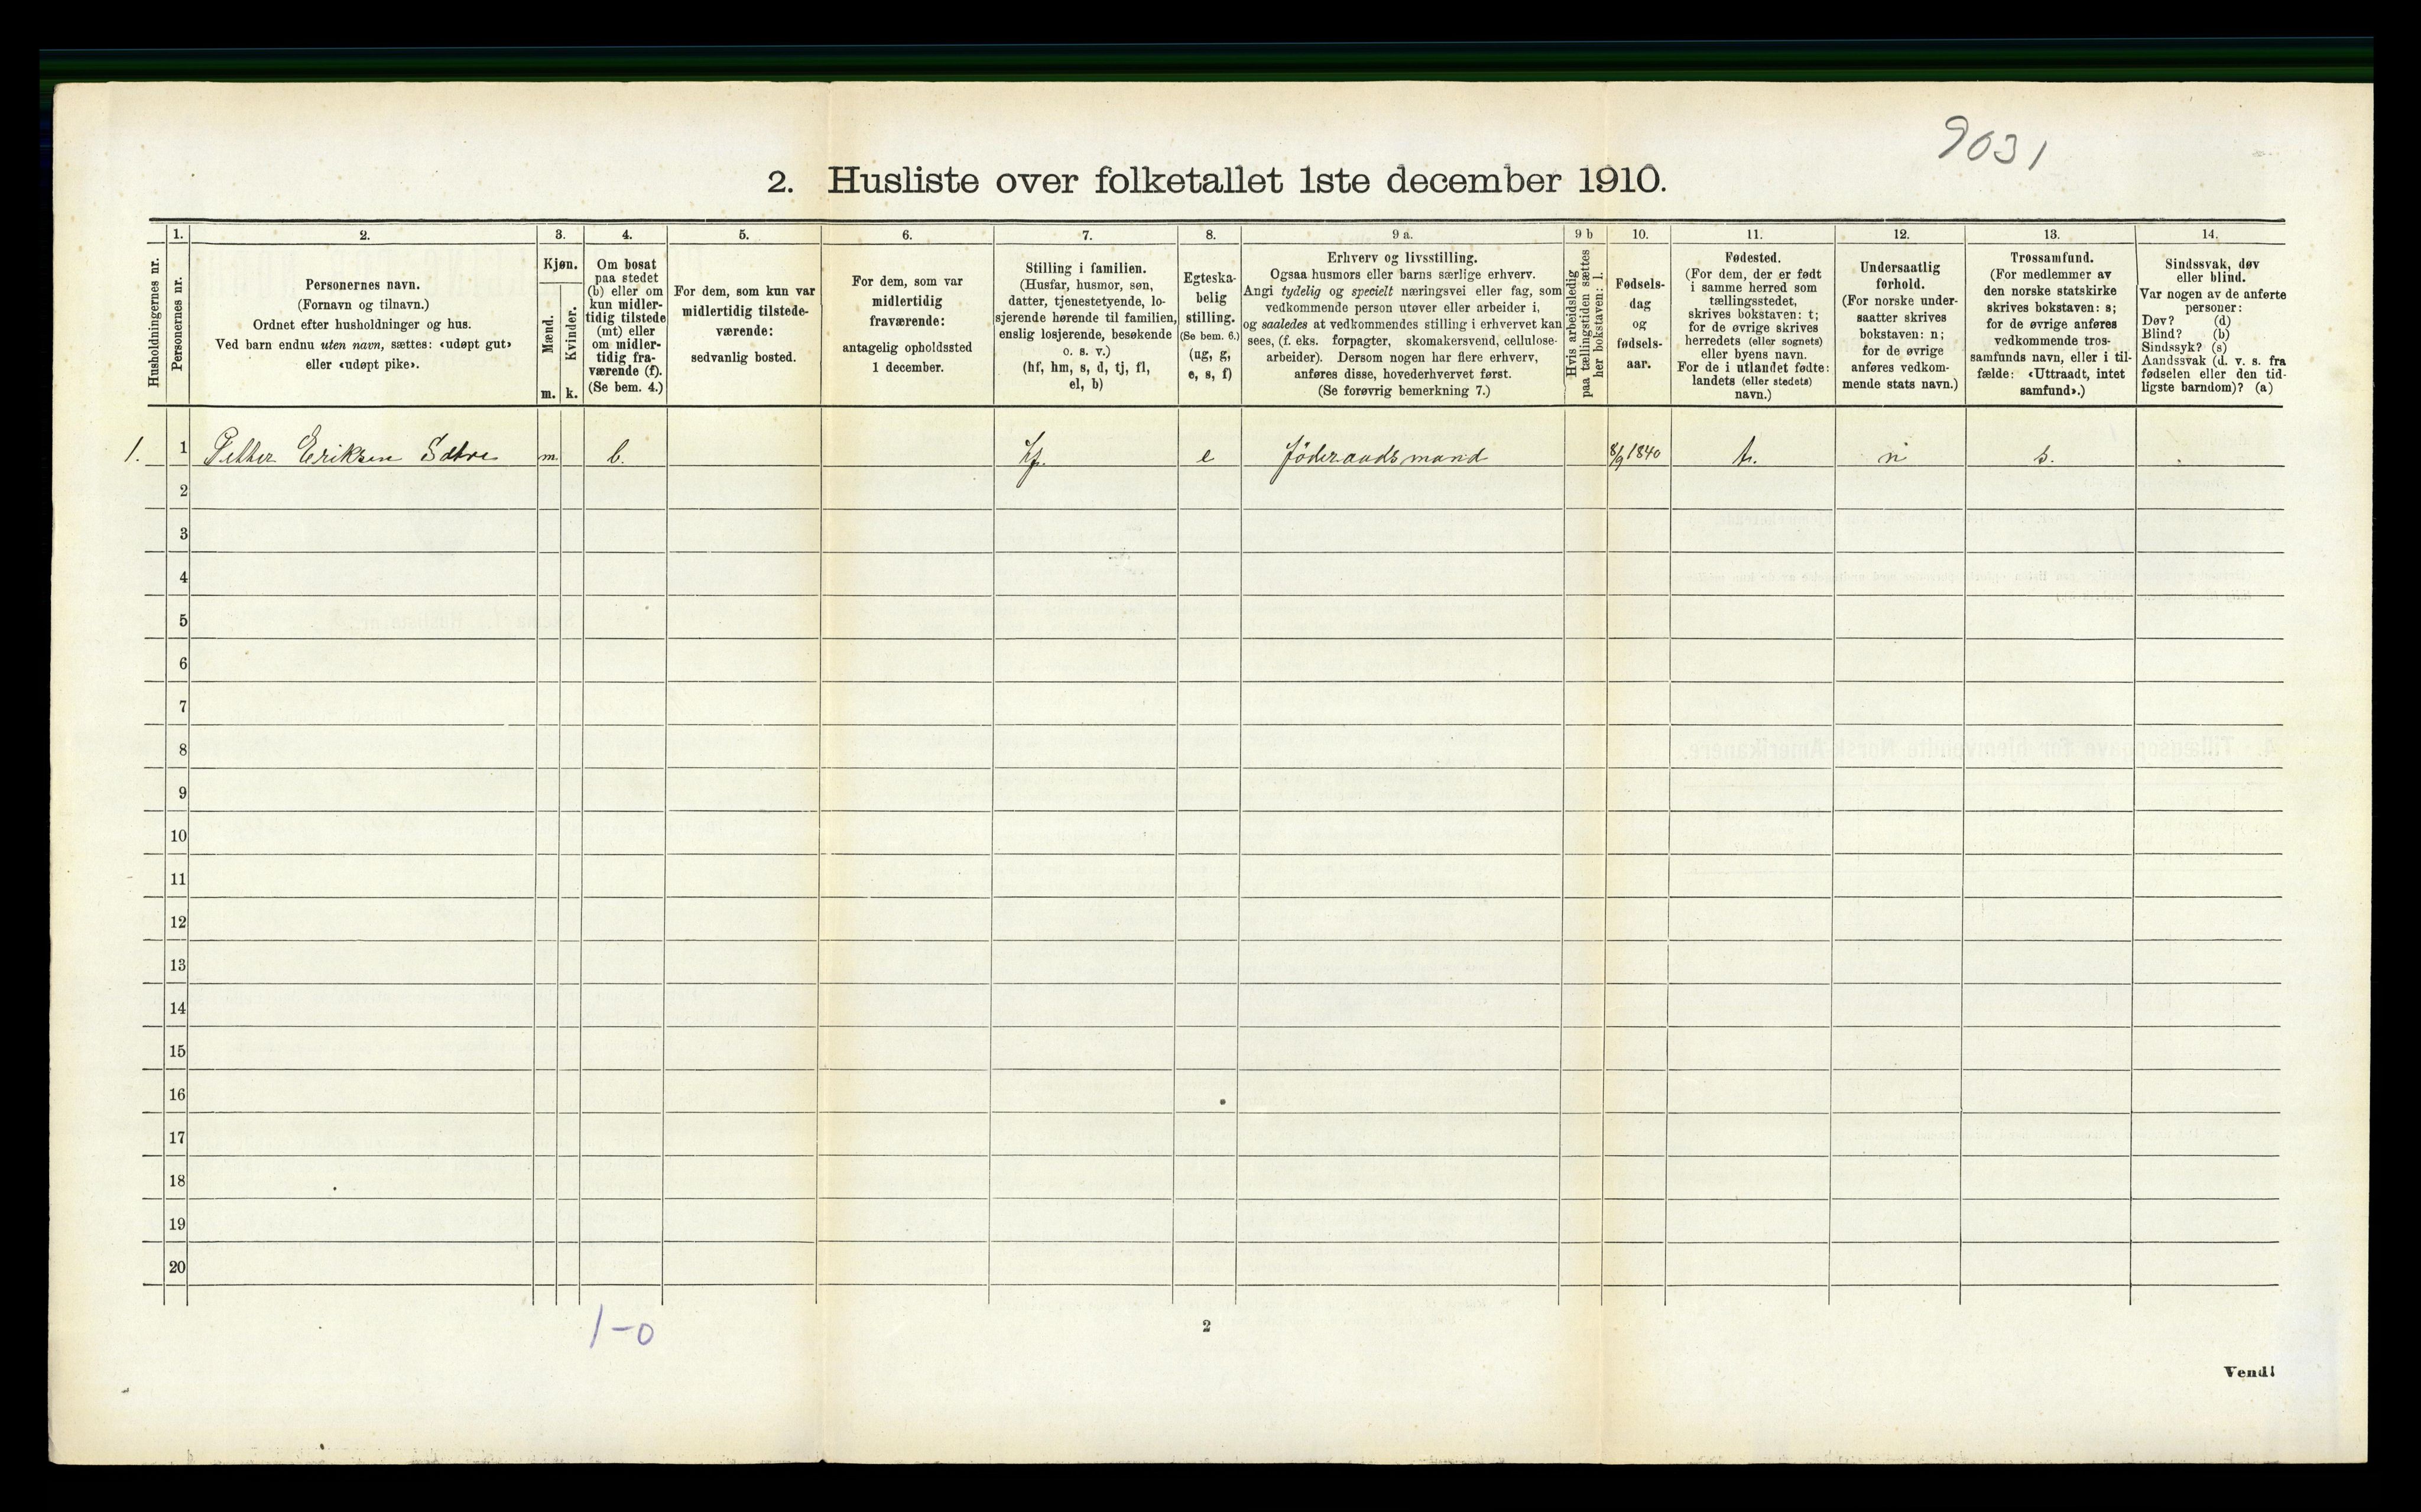 9031
2. Husliste over folketallet 1ste december 1910.
Husholdningernes nr.
1.
Personernes nr.
2.
Personernes navn.
(Fornavn og tilnavn.)
Ordnet efter husholdninger og hus.
Ved barn endnu uten navn, sættes: «udøpt gut»
eller «udøpt pike».
3.
Kjøn.
Mænd.
m.
Kvinder.
k.
4.
Om bosat
paa stedet
(b) eller om
kun midler-
tidig tilstede
(mt) eller
om midler-
tidig fra-
værende (f).
(Se bem. 4.)
5.
For dem, som kun var
midlertidig tilstede-
værende:
sedvanlig bosted.
6.
For dem, som var
midlertidig
fraværende:
antagelig opholdssted
1 december.
7.
Stilling i familien.
(Husfar, husmor, søn,
datter, tjenestetyende, lo-
sjerende hørende til familien,
enslig losjerende, besøkende
o. s. v.)
(hf, hm, s, d, tj, fl,
el, b)
8.
Egteska-
belig
stilling.
(Se bem. 6.)
(ug, g,
e, s, f)
9 a.
Erhverv og livsstilling.
Ogsaa husmors eller barns særlige erhverv.
Angi tydelig og specielt næringsvei eller fag, som
vedkommende person utøver eller arbeider i,
og saaledes at vedkommendes stilling i erhvervet kan
sees, (f. eks. forpagter, skomakersvend, cellulose-
arbeider). Dersom nogen har flere erhverv,
anføres disse, hovederhvervet først.
(Se forøvrig bemerkning 7.)
9 b
Hvis arbeidsledig
paa tællingstiden sættes
her bokstaven: l.
10.
Fødsels-
dag
og
fødsels-
aar.
11.
Fødested.
(For dem, der er født
i samme herred som
tællingsstedet,
skrives bokstaven: t;
for de øvrige skrives
herredets (eller sognets)
eller byens navn.
For de i utlandet fødte:
landets (eller stedets)
navn.)
12.
Undersaatlig
forhold.
(For norske under-
saatter skrives
bokstaven: n;
for de øvrige
anføres vedkom-
mende stats navn.)
13.
Trossamfund.
(For medlemmer av
den norske statskirke
skrives bokstaven: s;
for de øvrige anføres
vedkommende tros-
samfunds navn, eller i til-
fælde: «Uttraadt, intet
samfund».)
14.
Sindssvak, døv
eller blind.
Var nogen av de anførte
personer:
Døv? (d)
Blind? (b)
Sindssyk? (s)
Aandssvak (d. v. s. fra
fødselen eller den tid-
ligste barndom)? (a)
1. 1 Petter Eriksen Sætre m. b. hf. e föderaadsmand 8/9 1840 t. n s.
2
3
4
5
6
7
8
9
10
11
12
13
14
15
16
17
18
19
20
1-0
2
Vend!